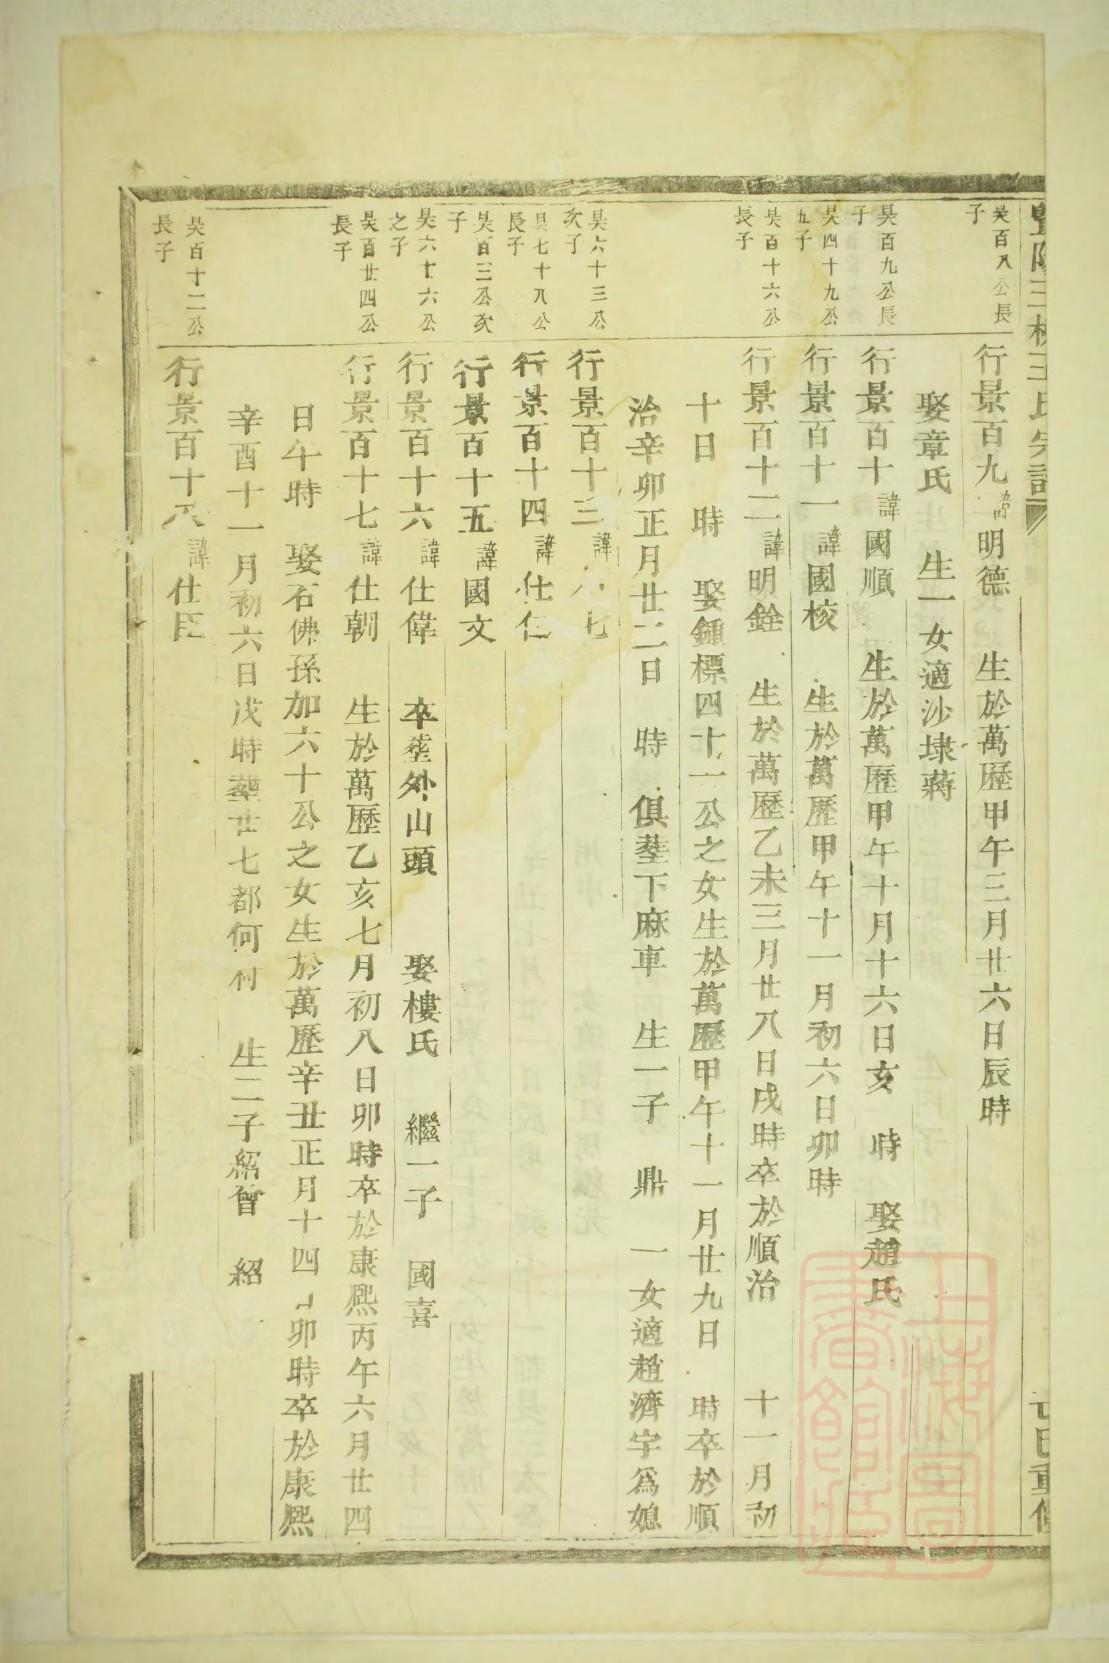 昊百八公長
子
行景百九諱明德　生於萬歷甲午三月廿六日辰時
娶章氏　生一女適沙埭蔣
昊百九公長
子
行景百十諱國順　生於萬歷甲午十月十六日亥　時　娶趙氏
昊四十九公
五子
行景百十一諱國核　生於萬歷甲午十一月初六日卯時
昊百十六公
長子
行景百十二諱明銓　生於萬歷乙未三月廿八日戌時卒於順治　十一月初
十日　時　娶鍾標四十一公之女生於萬歷甲午十一月廿九日　時卒於順
治辛卯正月廿二日　時　俱塟下麻車　生一子　鼎　一女適趙濟宇爲媳
昊六十三公
次子
行景百十三諱
昊七十八公
長子
行景百十四諱仕仁
昊百三公次
子
行景百十五諱國文
昊六十六公
之子
行景百十六諱仕偉　卒塟外山頭　娶樓氏　繼一子　國喜
昊百廿四公
長子
行景百十七諱仕朝　生於萬歷乙亥七月初八日卯時卒於康熙丙午六月廿四
日午時　娶石佛孫加六十公之女生於萬歷辛丑正月十四日卯時卒於康熙
辛酉十一月初六日戌時塟廿七都何村　生二子紹曾　紹
昊百十二公
長子
行景百十八諱仕臣